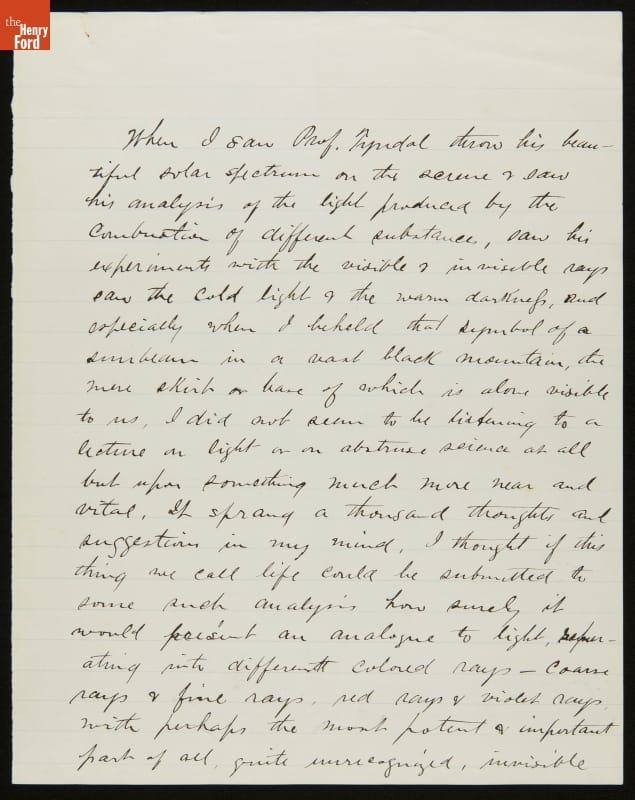 the
Henry
Ford
When I saw Prof. Tyndal throw his beau-
tiful solar spectrum on the screne & saw
his analysis of the light produced by the
Combustion of different substance, saw his
experiments with the visible & invisible rays
saw the cold light & the warm darkness, and
especially when I beheld that symbol of a
sunbeam in a vast black mountain, the
mere skirt or base of which is alone visible
to us, I did not seem to be listening to a
lecture on light or on abstruse science at all
but upon something much more near and
vital. It sprang a thousand thoughts and
suggestions in my mind. I thought if this
thing we call life could be submitted to
some such analysis how surely it
would present an analogue to light, seper-
ating into different colored rays — coarse
rays & fine rays, red rays & violet rays,
with perhaps the most potent & important
part of all, quite unrecognized, invisible